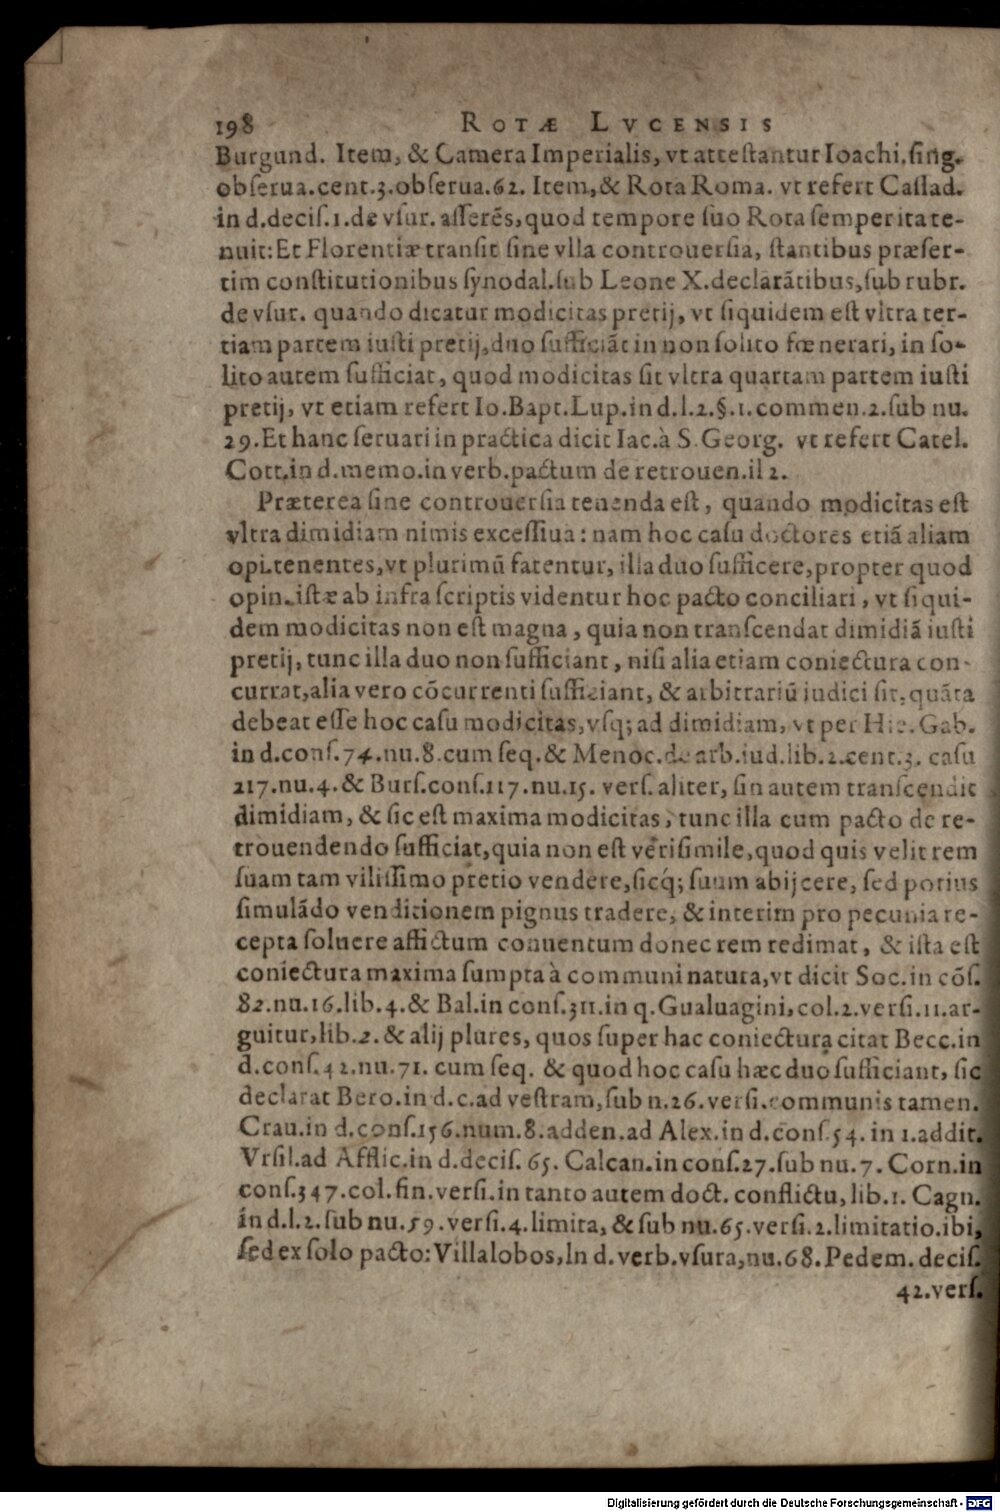 198 ROTÆ LVCENSIS
Burgund. Item, & Camera Imperialis, vt attestantur Ioachi.sing.
obserua.cent.3.obserua.62. Item,& Rota Roma. vt refert Cassad.
in d.decis.1.de vsur. asserẽs,quod tempore suo Rota semper ita te-
nuit:Et Florentiæ transit sine vlla controuersia, stantibus præser-
tim constitutionibus synodal.sub Leone X.declarãtibus,sub rubr.
de vsur. quando dicatur modicitas pretij, vt siquidem est vltra ter-
tiam partem iusti pretij,duo sufficiãt in non solito fœnerari, in so-
lito autem sufficiat, quod modicitas sit vltra quartam partem iusti
pretij, vt etiam refert Io.Bapt.Lup.in d.l.2.§.1.commen.2.sub nu.
29.Et hanc seruari in practica dicit Iac.à S.Georg. vt refert Catel.
Cott.in d.memo.in verb.pactum de retrouen.il 2.
Præterea sine controuersia tenenda est, quando modicitas est
vltra dimidiam nimis excessiua: nam hoc casu doctores etiã aliam
opi.tenentes,vt plurimũ fatentur, illa duo sufficere,propter quod
opin.istæ ab infra scriptis videntur hoc pacto conciliari, vt si qui-
dem modicitas non est magna, quia non transcendat dimidiã iusti
pretij, tunc illa duo non sufficiant, nisi alia etiam coniectura con-
currat,alia vero cõcurrenti sufficiant, & arbitrariũ iudici sit,quãta
debeat esse hoc casu modicitas,vsq; ad dimidiam, vt per Hie. Gab.
in d.cons.74.nu.8.cum seq.& Menoc.de arb.iud.lib.2.cent.3. casu
217.nu.4.& Burs.cons.117.nu.15. vers.aliter, sin autem transcendit
dimidiam, & sic est maxima modicitas, tunc illa cum pacto de re-
trouendendo sufficiat,quia non est verisimile,quod quis velit rem
suam tam vilissimo pretio vendere,sicq́; suum abijcere, sed potius
simulãdo venditionem pignus tradere, & interim pro pecunia re-
cepta soluere affictum conuentum donec rem redimat, & ista est
coniectura maxima sumpta à communi natura,vt dicit Soc.in cõs.
82.nu.16.lib.4.& Bal.in cons.311.in q.Gualuagini,col.2.versi.11.ar-
guitur,lib.2.& alij plures, quos super hac coniectura citat Becc.in
d.cons.42.nu.71. cum seq. & quod hoc casu hæc duo sufficiant, sic
declarat Bero.in d.c.ad vestram,sub n.26.versi.communis tamen.
Crau.in d.cons.156.num.8.adden.ad Alex.in d.cons.54. in 1.addit.
Vrsil.ad Afflic.in d.decis.65. Calcan.in cons.27.sub nu.7. Corn.in
cons.347.col.fin.versi.in tanto autem doct. conflictu, lib.1. Cagn.
in d.l.2.sub nu.59.versi.4.limita, & sub nu.65.versi.2.limitatio.ibi,
sed ex solo pacto: Villalobos,In d.verb.vsura,nu.68.Pedem. decis.
42.vers.
Digitalisierung gefördert durch die Deutsche Forschungsgemeinschaft - DFG